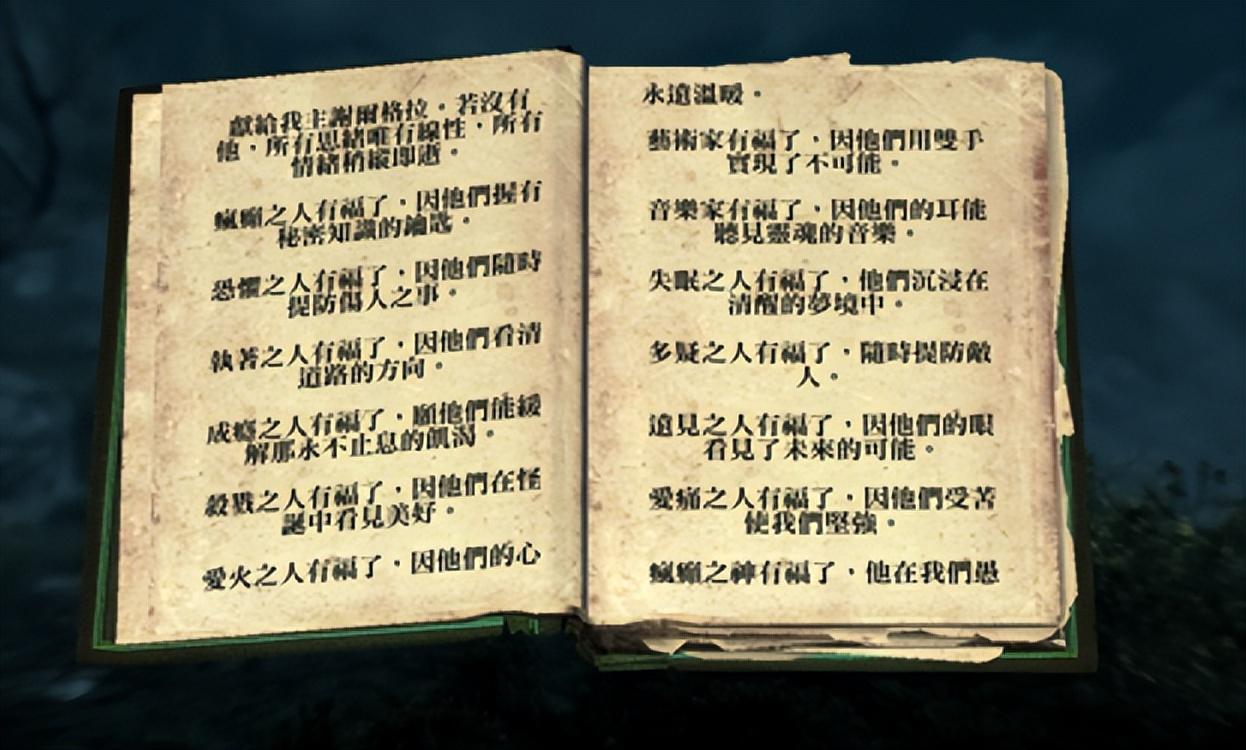 獻給我主謝爾格拉。若沒有
他,所有思緒唯有線性,所有
情緒稍縱即逝。
瘋癲之人有福了,因他們握有
秘密知識的鑰匙。
恐懼之人有福了,因他們隨時
提防傷人之事。
執著之人有福了,因他們看清
道路的方向。
成癮之人有福了,願他們能緩
解那永不止息的飢渴。
殺戮之人有福了,因他們在怪
誕中看見美好。
愛火之人有福了,因他們的心
永遠溫暖。
藝術家有福了,因他們用雙手
實現了不可能。
音樂家有福了,因他們的耳能
聽見靈魂的音樂。
失眠之人有福了,他們沉浸在
清醒的夢境中。
多疑之人有福了,隨時提防敵
人。
遠見之人有福了,因他們的眼
看見了未來的可能。
愛痛之人有福了,因他們受苦
使我們堅強。
瘋癲之神有福了,他在我們愚